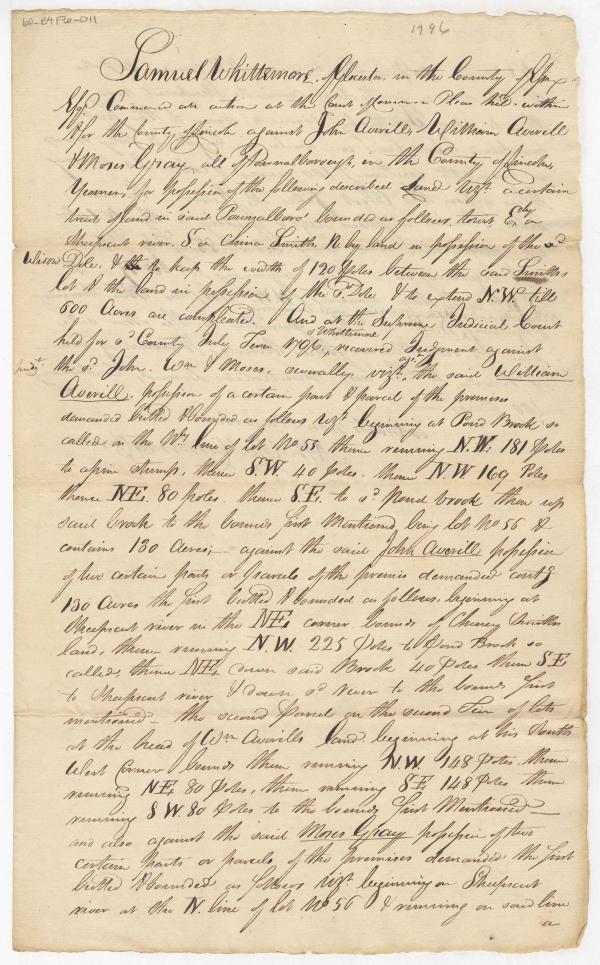 60-E4F6-011
1796
Samuel Whittemore, of Glocester in the County of Essex
Esqr Commenced an action at the Court of Common Pleas held within
& for the County of Lincoln against John Averill, William Averill
& Moses Gray all of Pownalborough, in the County of Lincoln,
Yeomen, for possession of the following described Land vizt a certain
tract of land in said Pownalboro' bounded as follows, to wit Ely on
Sheepscut river. S. on China Smith. N. by land in possession of the sd
Wilson Dole. & to keep the width of 120 Poles between the said Smiths
lot & the land in possession of the sd Dole & to extend N.W. till
600 Acres are compleated. And at the Supreme Judicial Court
held for sd County July Term 1796, sd Whittemore recovered Judgment against
the sd John, Wm & Moses, severally, vizt, agt the said William
Averill, possession of a certain part & parcel of the premises
demanded butted & bounded as follows vizt beginning at Pond Brook so
called on the line of lot No 55 thence running N.W. 181 Poles
to a pine stump, thence S.W. 40 Poles. thence N.W 169 Poles
thence N.E. 80 poles. thence S.E. to sd Pond brook then up
said brook to the bounds first Mentioned, being lot No 56 &
contains 130 Acres;— against the said John Averill possession
of two certain parts or parcels of the premises demanded contg
130 Acres the first butted & bounded as follows, beginning at
Sheepscut river in the NE, corner bounds of Cheney Smiths
land, thence running N.W. 225 Poles to Pond Brook so
called, thence NE, down said Brook 40 Poles thence S.E
to Sheepscut river & down sd river to the bounds first
mentioned— the second parcel on the second Tier of lots
at the head of Wm Averills land beginning at his South
West Corner bounds thence running N.W. 148 Poles thence
running N.E. 80 Poles, thence running S.E. 148 Poles thence
running S.W. 80 Poles to the bounds first Mentioned—
and also against the said Moses Gray possession of two
certain parts or parcels of the premises demanded the first
butted & bounded as follows vizt beginning on Sheepscut
river at the N. line of lot No 56 & running on said line
a